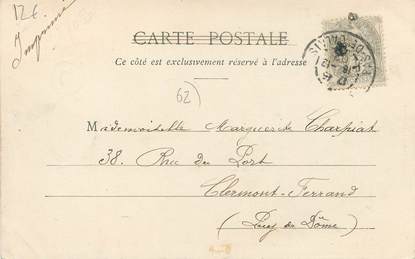 12€
Imprimé
CARTE POSTALE
Ce côté est exclusivement réservé à l'adresse
62)
Mademoiselle Marguerite Charpiat
38. Rue du Port
Clermont-Ferrand
(Puy de Dôme)